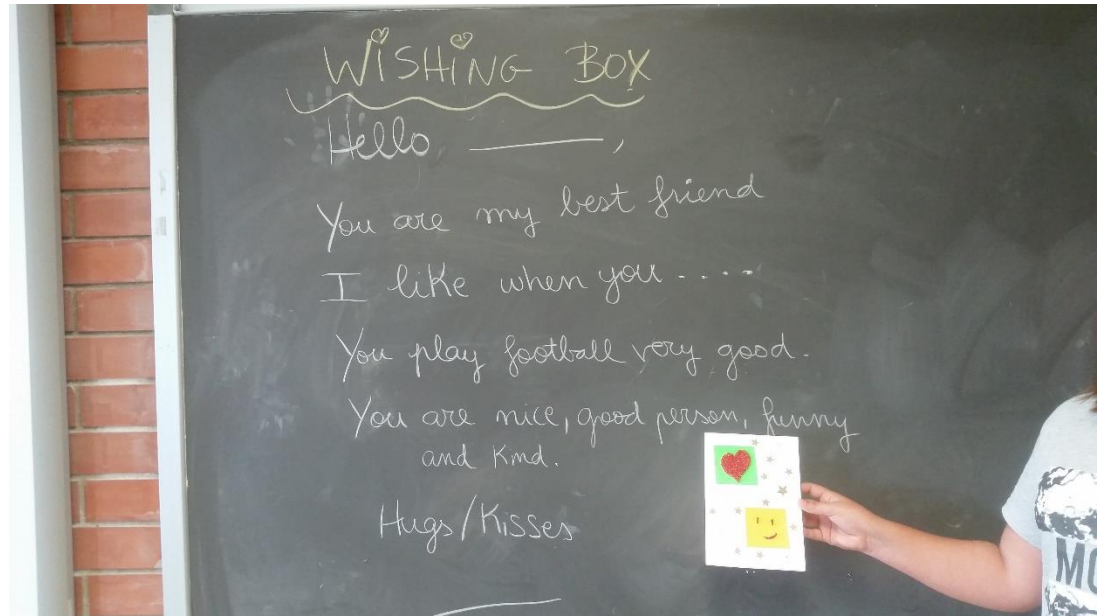 WiSHiNG BOX
Hello ______,
You are my best friend
I like when you . . . .
You play football very good.
You are nice, good person, funny
and kind.
Hugs/Kisses